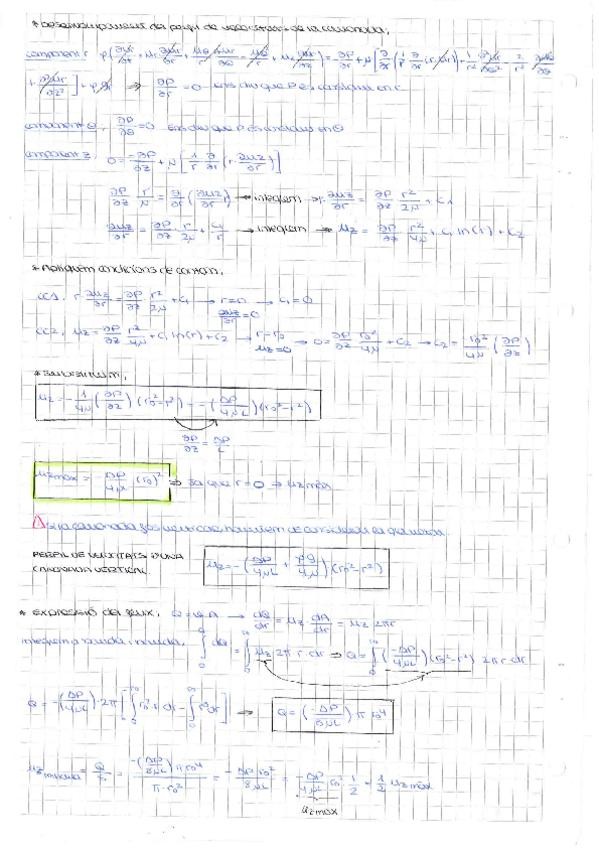 * Desenvolupament del perfil de velocitats de la canonada,
component r ρ(∂ur/∂t + ur ∂ur/∂r + uθ/r ∂ur/∂θ - uθ²/r + uz ∂ur/∂z) = -∂P/∂r + μ[∂/∂r(1/r ∂/∂r(r·ur)) + 1/r² ∂²ur/∂θ² - 2/r² ∂uθ/∂θ
+ ∂²ur/∂z²] + ρgr ⇒ ∂P/∂r = 0 ens diu que P és constant en r
component θ, ∂P/∂θ = 0 ens diu que P és constant en θ
component z, 0 = -∂P/∂z + μ[1/r ∂/∂r(r·∂uz/∂r)]
∂P/∂z r/μ = ∂/∂r(∂uz/∂r r) → integrem → r·∂uz/∂r = ∂P/∂z r²/2μ + C1
∂uz/∂r = ∂P/∂z · r/2μ + C1/r → integrem → uz = ∂P/∂z r²/4μ + C1 ln(r) + C2
* Apliquem condicions de contorn,
CC1, r ∂uz/∂r = ∂P/∂z · r²/2μ + C1 → r=0 → C1=0
∂uz/∂r = 0
CC2, uz = ∂P/∂z r²/4μ + C1 ln(r) + C2 → r=r0 → 0 = ∂P/∂z r0²/4μ + C2 → C2 = -r0²/4μ (∂P/∂z)
uz=0
* Substituim,
uz = -1/4μ (∂P/∂z)(r0²-r²) = -(ΔP/4μL)(r0²-r²)
∂P/∂z = ΔP/L
uz max = -ΔP/4μL (r0)² ⇒ Ja que r=0 → uz max
⚠ Si la canonada fos vertical hauríem de considerar la gravetat
PERFIL DE VELOCITATS D'UNA
CANONADA VERTICAL
uz = -(ΔP/4μL + ρg/4μ)(r0²-r²)
* EXPRESSIÓ del flux, Q = u·A → dQ/dr = uz · dA/dr = uz 2πr
∫₀ dQ = ∫₀ uz 2πr dr ⇒ Q = ∫₀ (-ΔP/4μL)(r0²-r²) 2πr dr
Q = -(ΔP/4μL)·2π[∫₀ r0² r dr - ∫₀ r³dr] → Q = (-ΔP/8μL) π r0⁴
uz mitjana = Q/S = -(ΔP/8μL) π r0⁴ / π·r0² = -ΔP r0²/8μL = -ΔP/4μL r0² 1/2 = 1/2 uz max
uz max